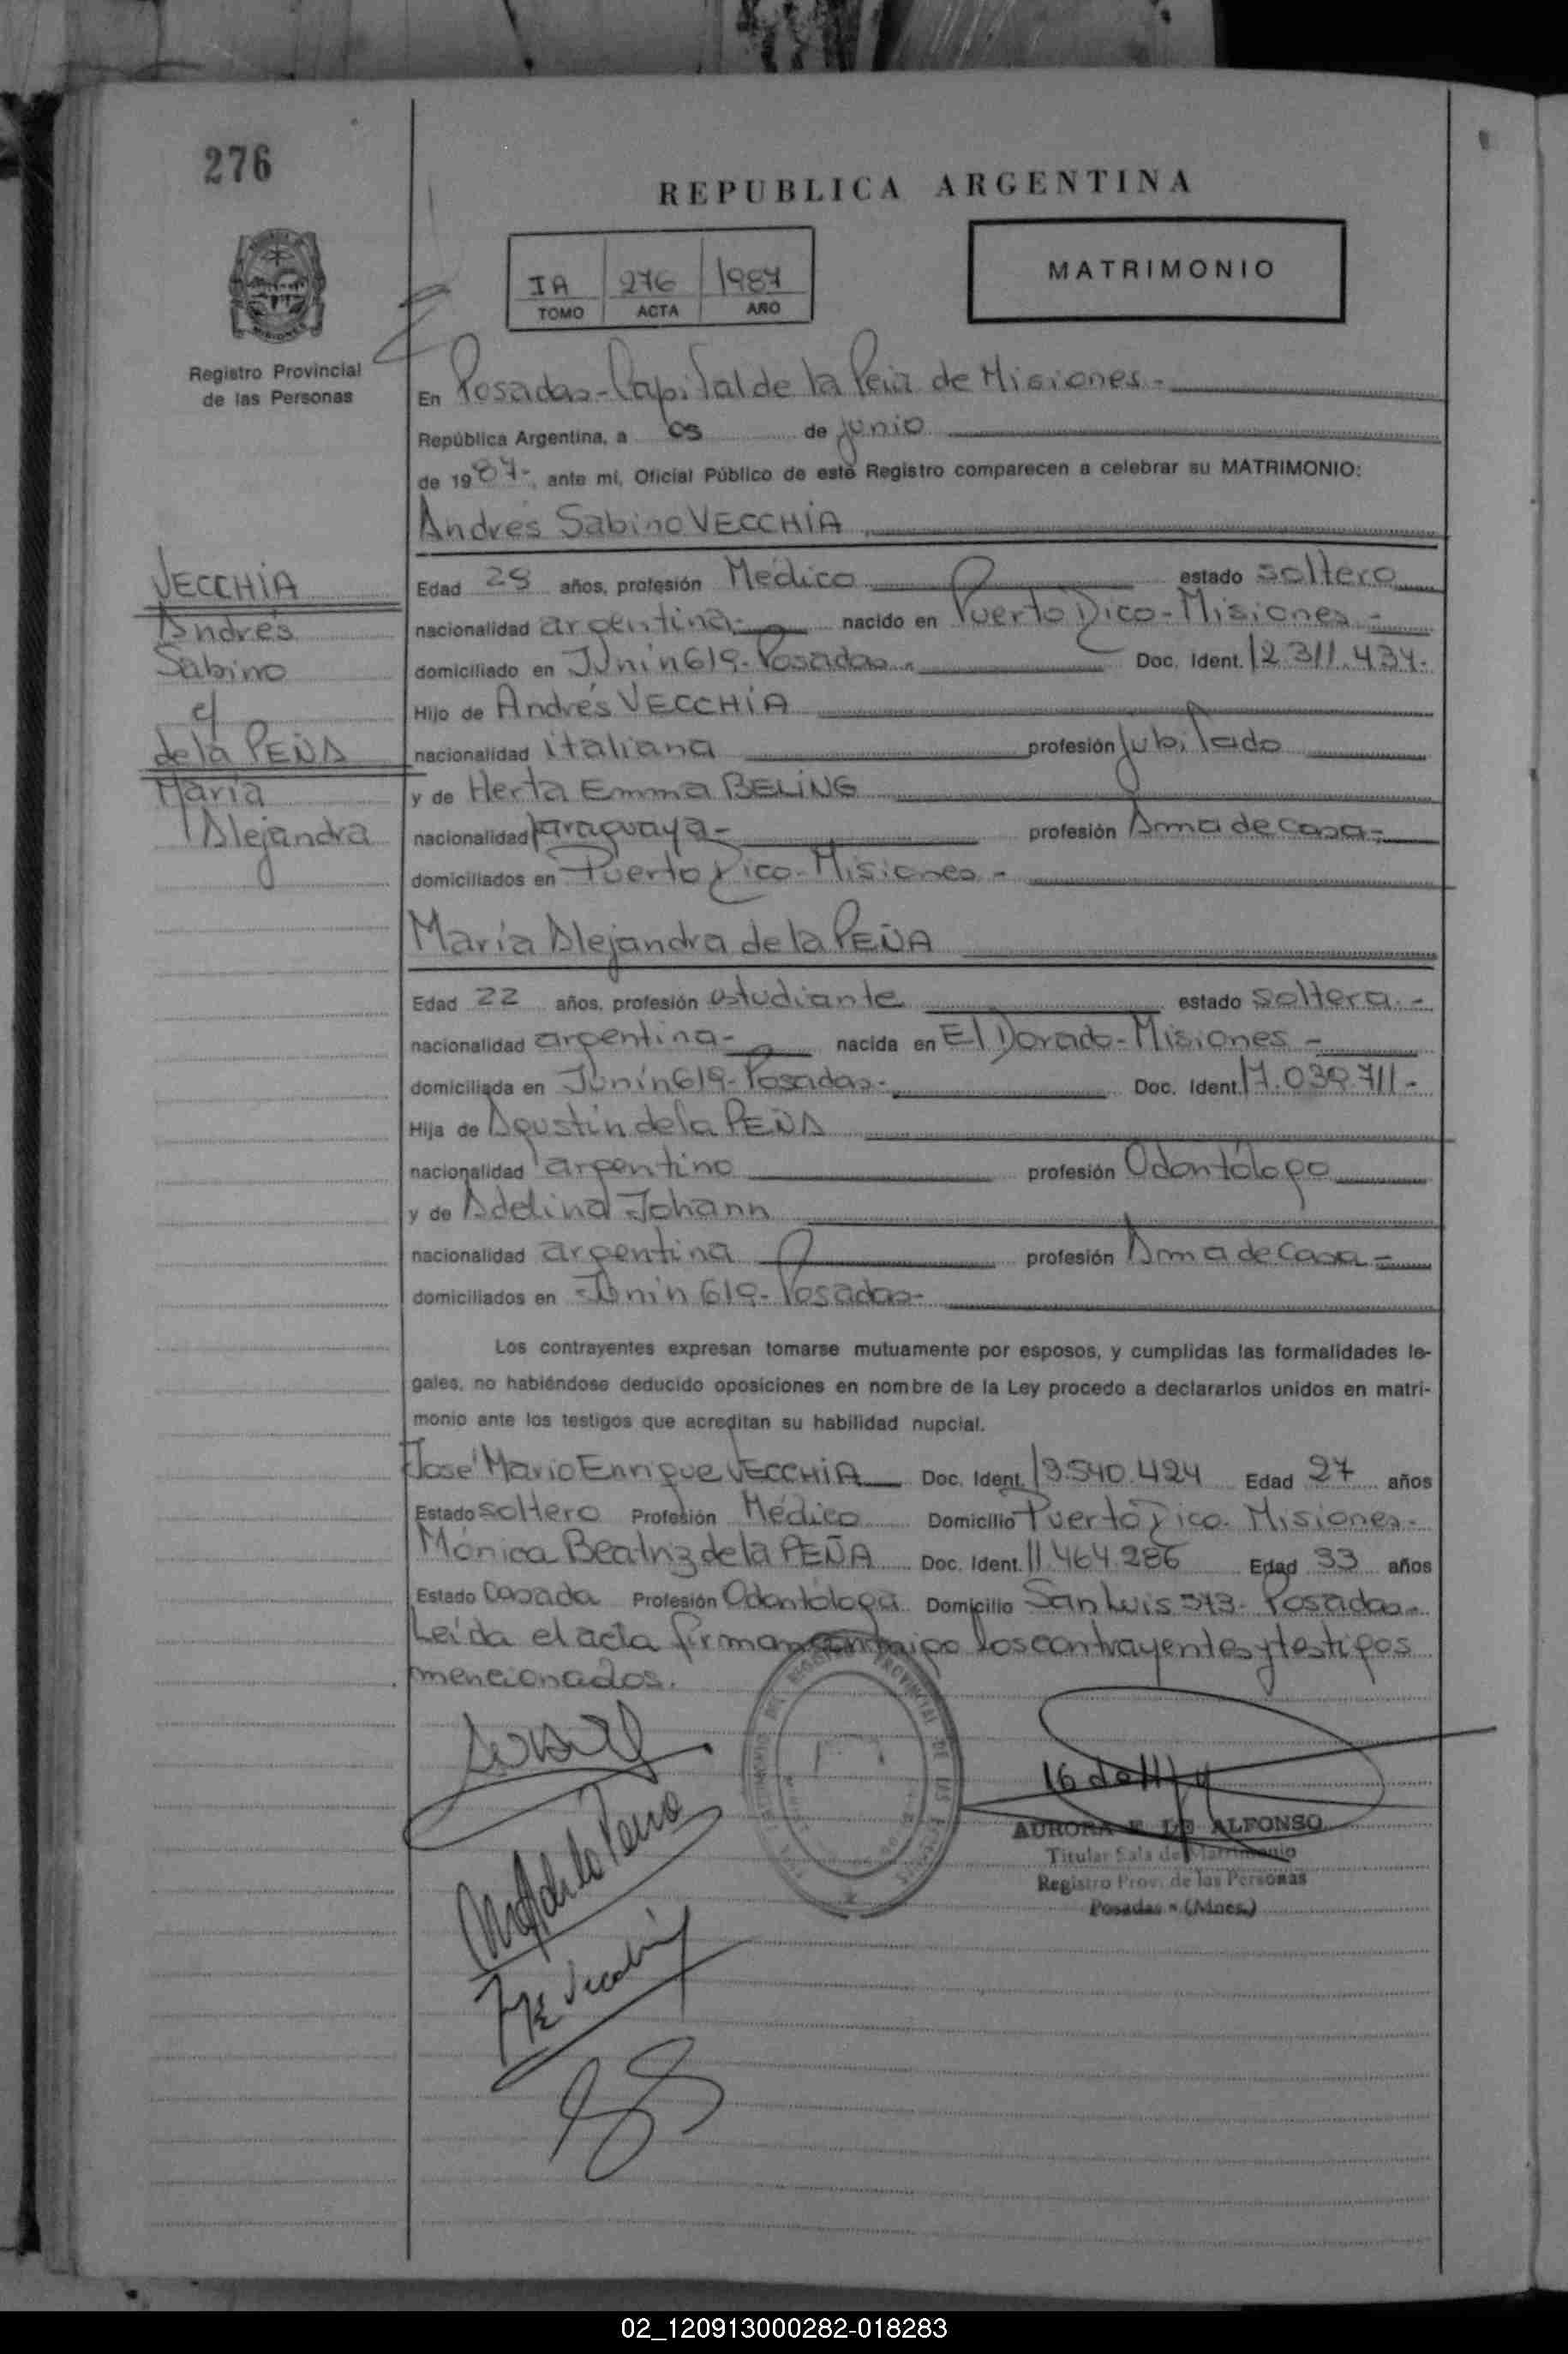 276
REPUBLICA ARGENTINA
IA 276 1987
TOMO ACTA AÑO
MATRIMONIO
Registro Provincial
de las Personas
En Posadas-Capital de la Pcia de Misiones-
República Argentina, a 05 de junio
de 1987-, ante mí, Oficial Público de este Registro comparecen a celebrar su MATRIMONIO:
Andrés Sabino VECCHIA
VECCHIA
Andrés
Sabino
y
de la PEÑA
María
Alejandra
Edad 29 años, profesión Médico estado soltero
nacionalidad argentina- nacido en Puerto Rico-Misiones-
domiciliado en Junín 619-Posadas- Doc. Ident. 12.311.434-
Hijo de Andrés VECCHIA
nacionalidad italiana profesión Jubilado
y de Herta Emma BELING
nacionalidad paraguaya- profesión Ama de casa-
domiciliados en Puerto Rico-Misiones-
María Alejandra de la PEÑA
Edad 22 años, profesión estudiante estado soltera.-
nacionalidad argentina- nacida en El Dorado-Misiones-
domiciliada en Junín 619-Posadas- Doc. Ident. 17.039.711-
Hija de Agustín de la PEÑA
nacionalidad argentino profesión Odontólogo
y de Adelina Johann
nacionalidad argentina profesión Ama de Casa-
domiciliados en Junín 619-Posadas-
Los contrayentes expresan tomarse mutuamente por esposos, y cumplidas las formalidades le-
gales, no habiéndose deducido oposiciones en nombre de la Ley procedo a declararlos unidos en matri-
monio ante los testigos que acreditan su habilidad nupcial.
José Mario Enrique VECCHIA Doc. Ident. 13.540.424 Edad 27 años
Estado soltero Profesión Médico Domicilio Puerto Rico-Misiones-
Mónica Beatriz de la PEÑA Doc. Ident. 11.464.286 Edad 33 años
Estado Casada Profesión Odontóloga Domicilio San Luis 573-Posadas-
Leída el acta firman conmigo los contrayentes y testigos
mencionados.
AURORA E. DE ALFONSO
Titular Sala de Matrimonio
Registro Prov. de las Personas
Posadas - (Mnes.)
02_120913000282-018283